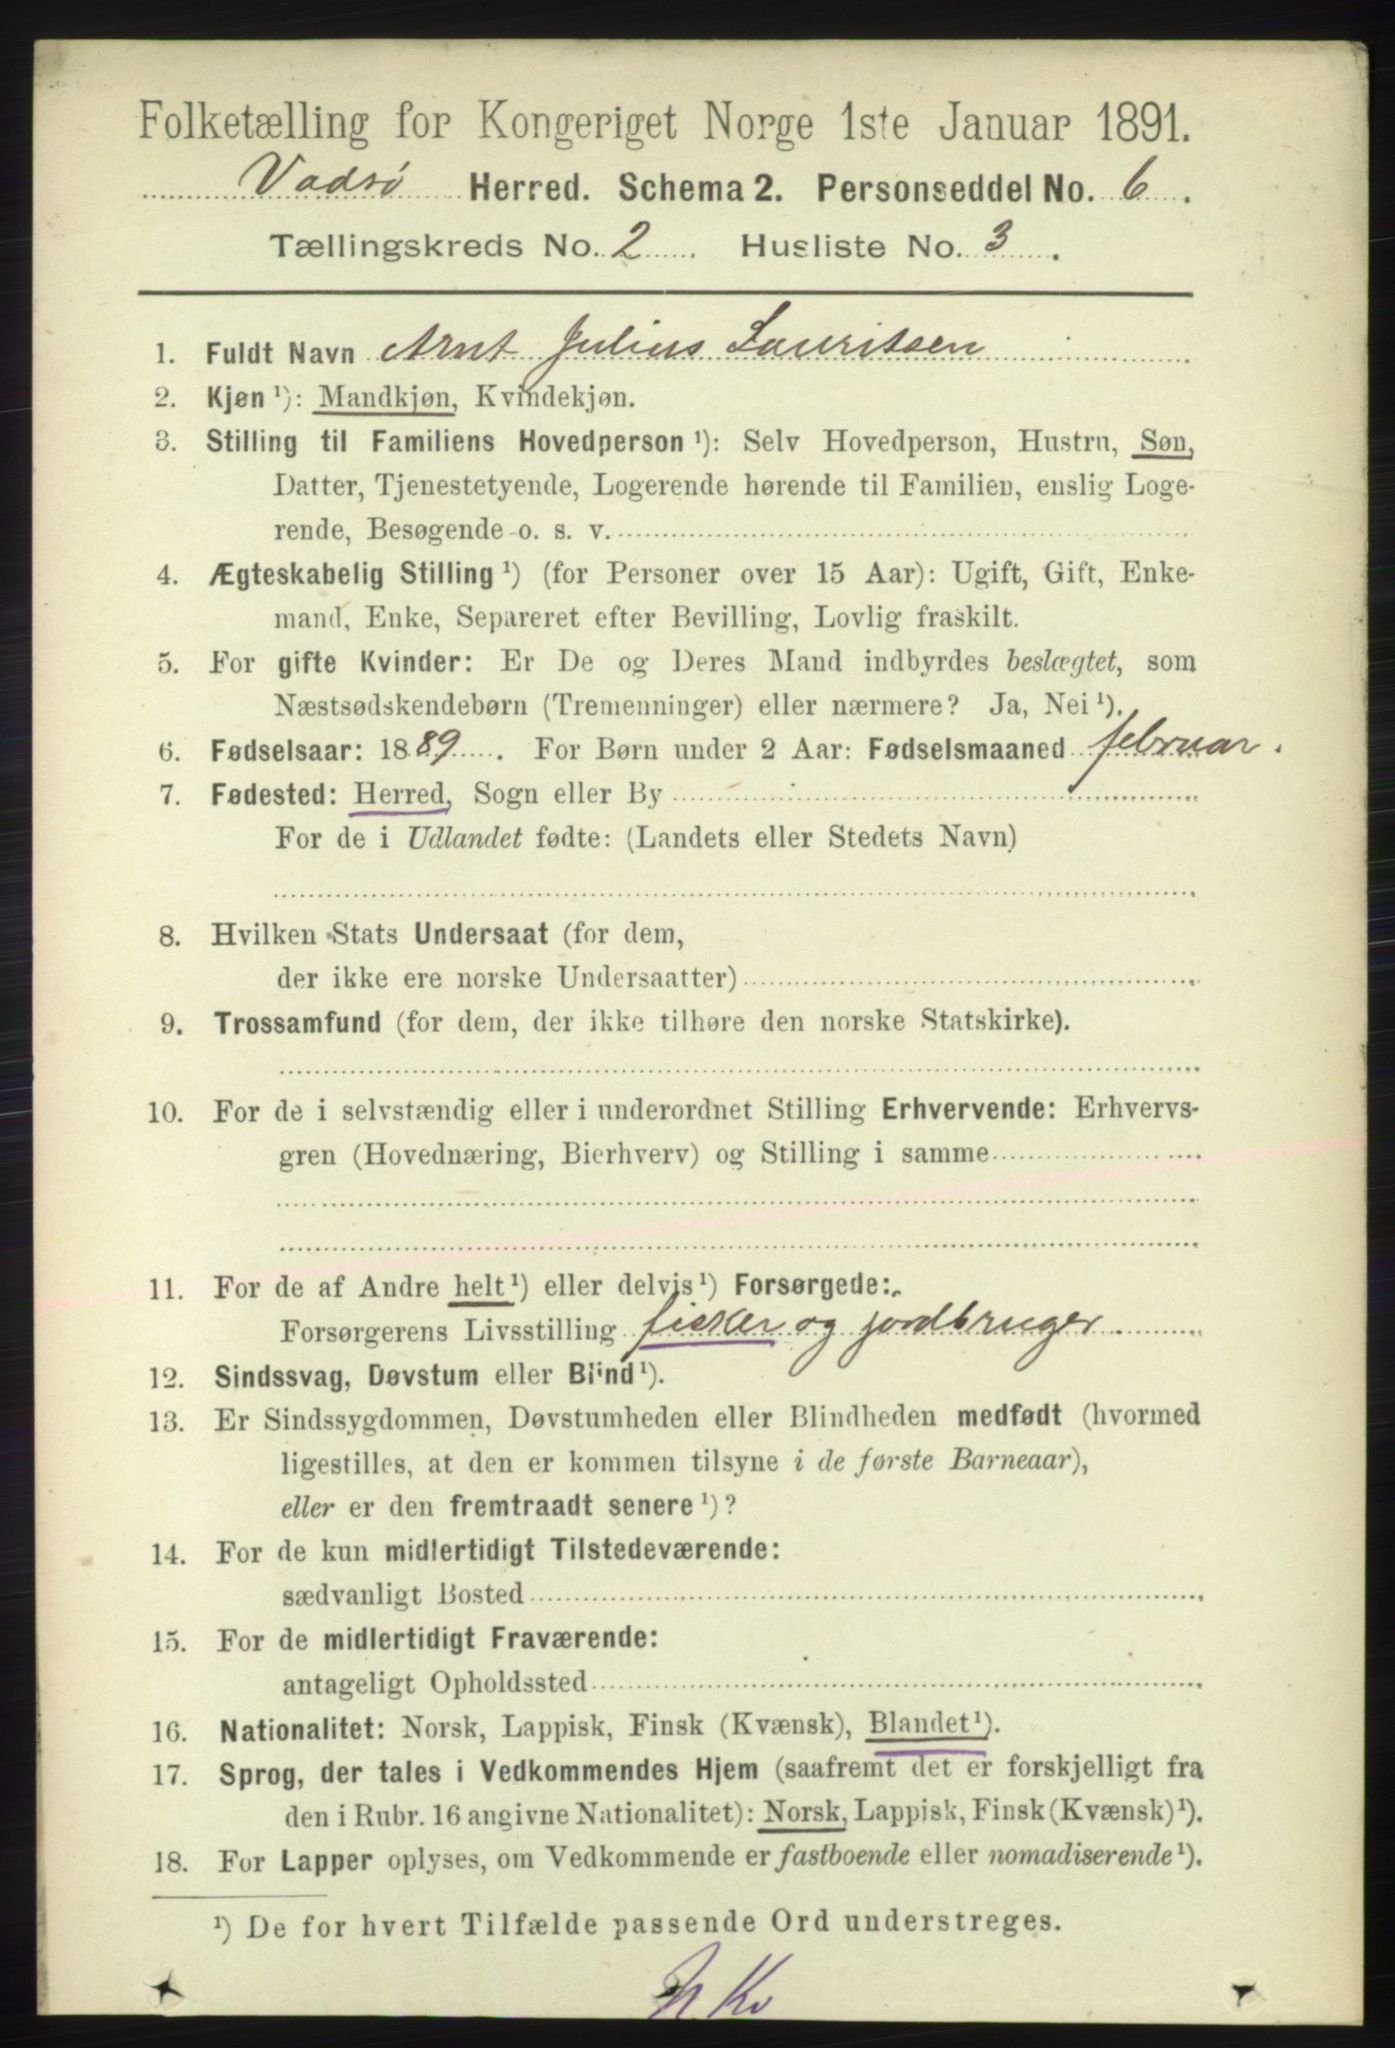 Folketælling for Kongeriget Norge 1ste Januar 1891.
Vadsø Herred. Schema 2. Personseddel No. 6.
Tællingskreds No. 2 Husliste No. 3.
1. Fuldt Navn Arnt Julius Lauritsen
2. Kjøn ¹): Mandkjøn, Kvindekjøn.
3. Stilling til Familiens Hovedperson ¹): Selv Hovedperson, Hustru, Søn,
Datter, Tjenestetyende, Logerende hørende til Familien, enslig Loge-
rende, Besøgende o. s. v.
4. Ægteskabelig Stilling ¹) (for Personer over 15 Aar): Ugift, Gift, Enke-
mand, Enke, Separeret efter Bevilling, Lovlig fraskilt.
5. For gifte Kvinder: Er De og Deres Mand indbyrdes beslægtet, som
Næstsødskendebørn (Tremenninger) eller nærmere? Ja, Nei ¹).
6. Fødselsaar: 1889. For Børn under 2 Aar: Fødselsmaaned februar.
7. Fødested: Herred, Sogn eller By
For de i Udlandet fødte: (Landets eller Stedets Navn)
8. Hvilken Stats Undersaat (for dem,
der ikke ere norske Undersaatter)
9. Trossamfund (for dem, der ikke tilhøre den norske Statskirke).
10. For de i selvstændig eller i underordnet Stilling Erhvervende: Erhvervs-
gren (Hovednæring, Bierhverv) og Stilling i samme
11. For de af Andre helt ¹) eller delvis ¹) Forsørgede:
Forsørgerens Livsstilling fisker og jordbruger
12. Sindssvag, Døvstum eller Blind ¹).
13. Er Sindssygdommen, Døvstumheden eller Blindheden medfødt (hvormed
ligestilles, at den er kommen tilsyne i de første Barneaar),
eller er den fremtraadt senere ¹)?
14. For de kun midlertidigt Tilstedeværende:
sædvanligt Bosted
15. For de midlertidigt Fraværende:
antageligt Opholdssted
16. Nationalitet: Norsk, Lappisk, Finsk (Kvænsk), Blandet ¹).
17. Sprog, der tales i Vedkommendes Hjem (saafremt det er forskjelligt fra
den i Rubr. 16 angivne Nationalitet): Norsk, Lappisk, Finsk (Kvænsk) ¹).
18. For Lapper oplyses, om Vedkommende er fastboende eller nomadiserende ¹).
¹) De for hvert Tilfælde passende Ord understreges.
N Kv